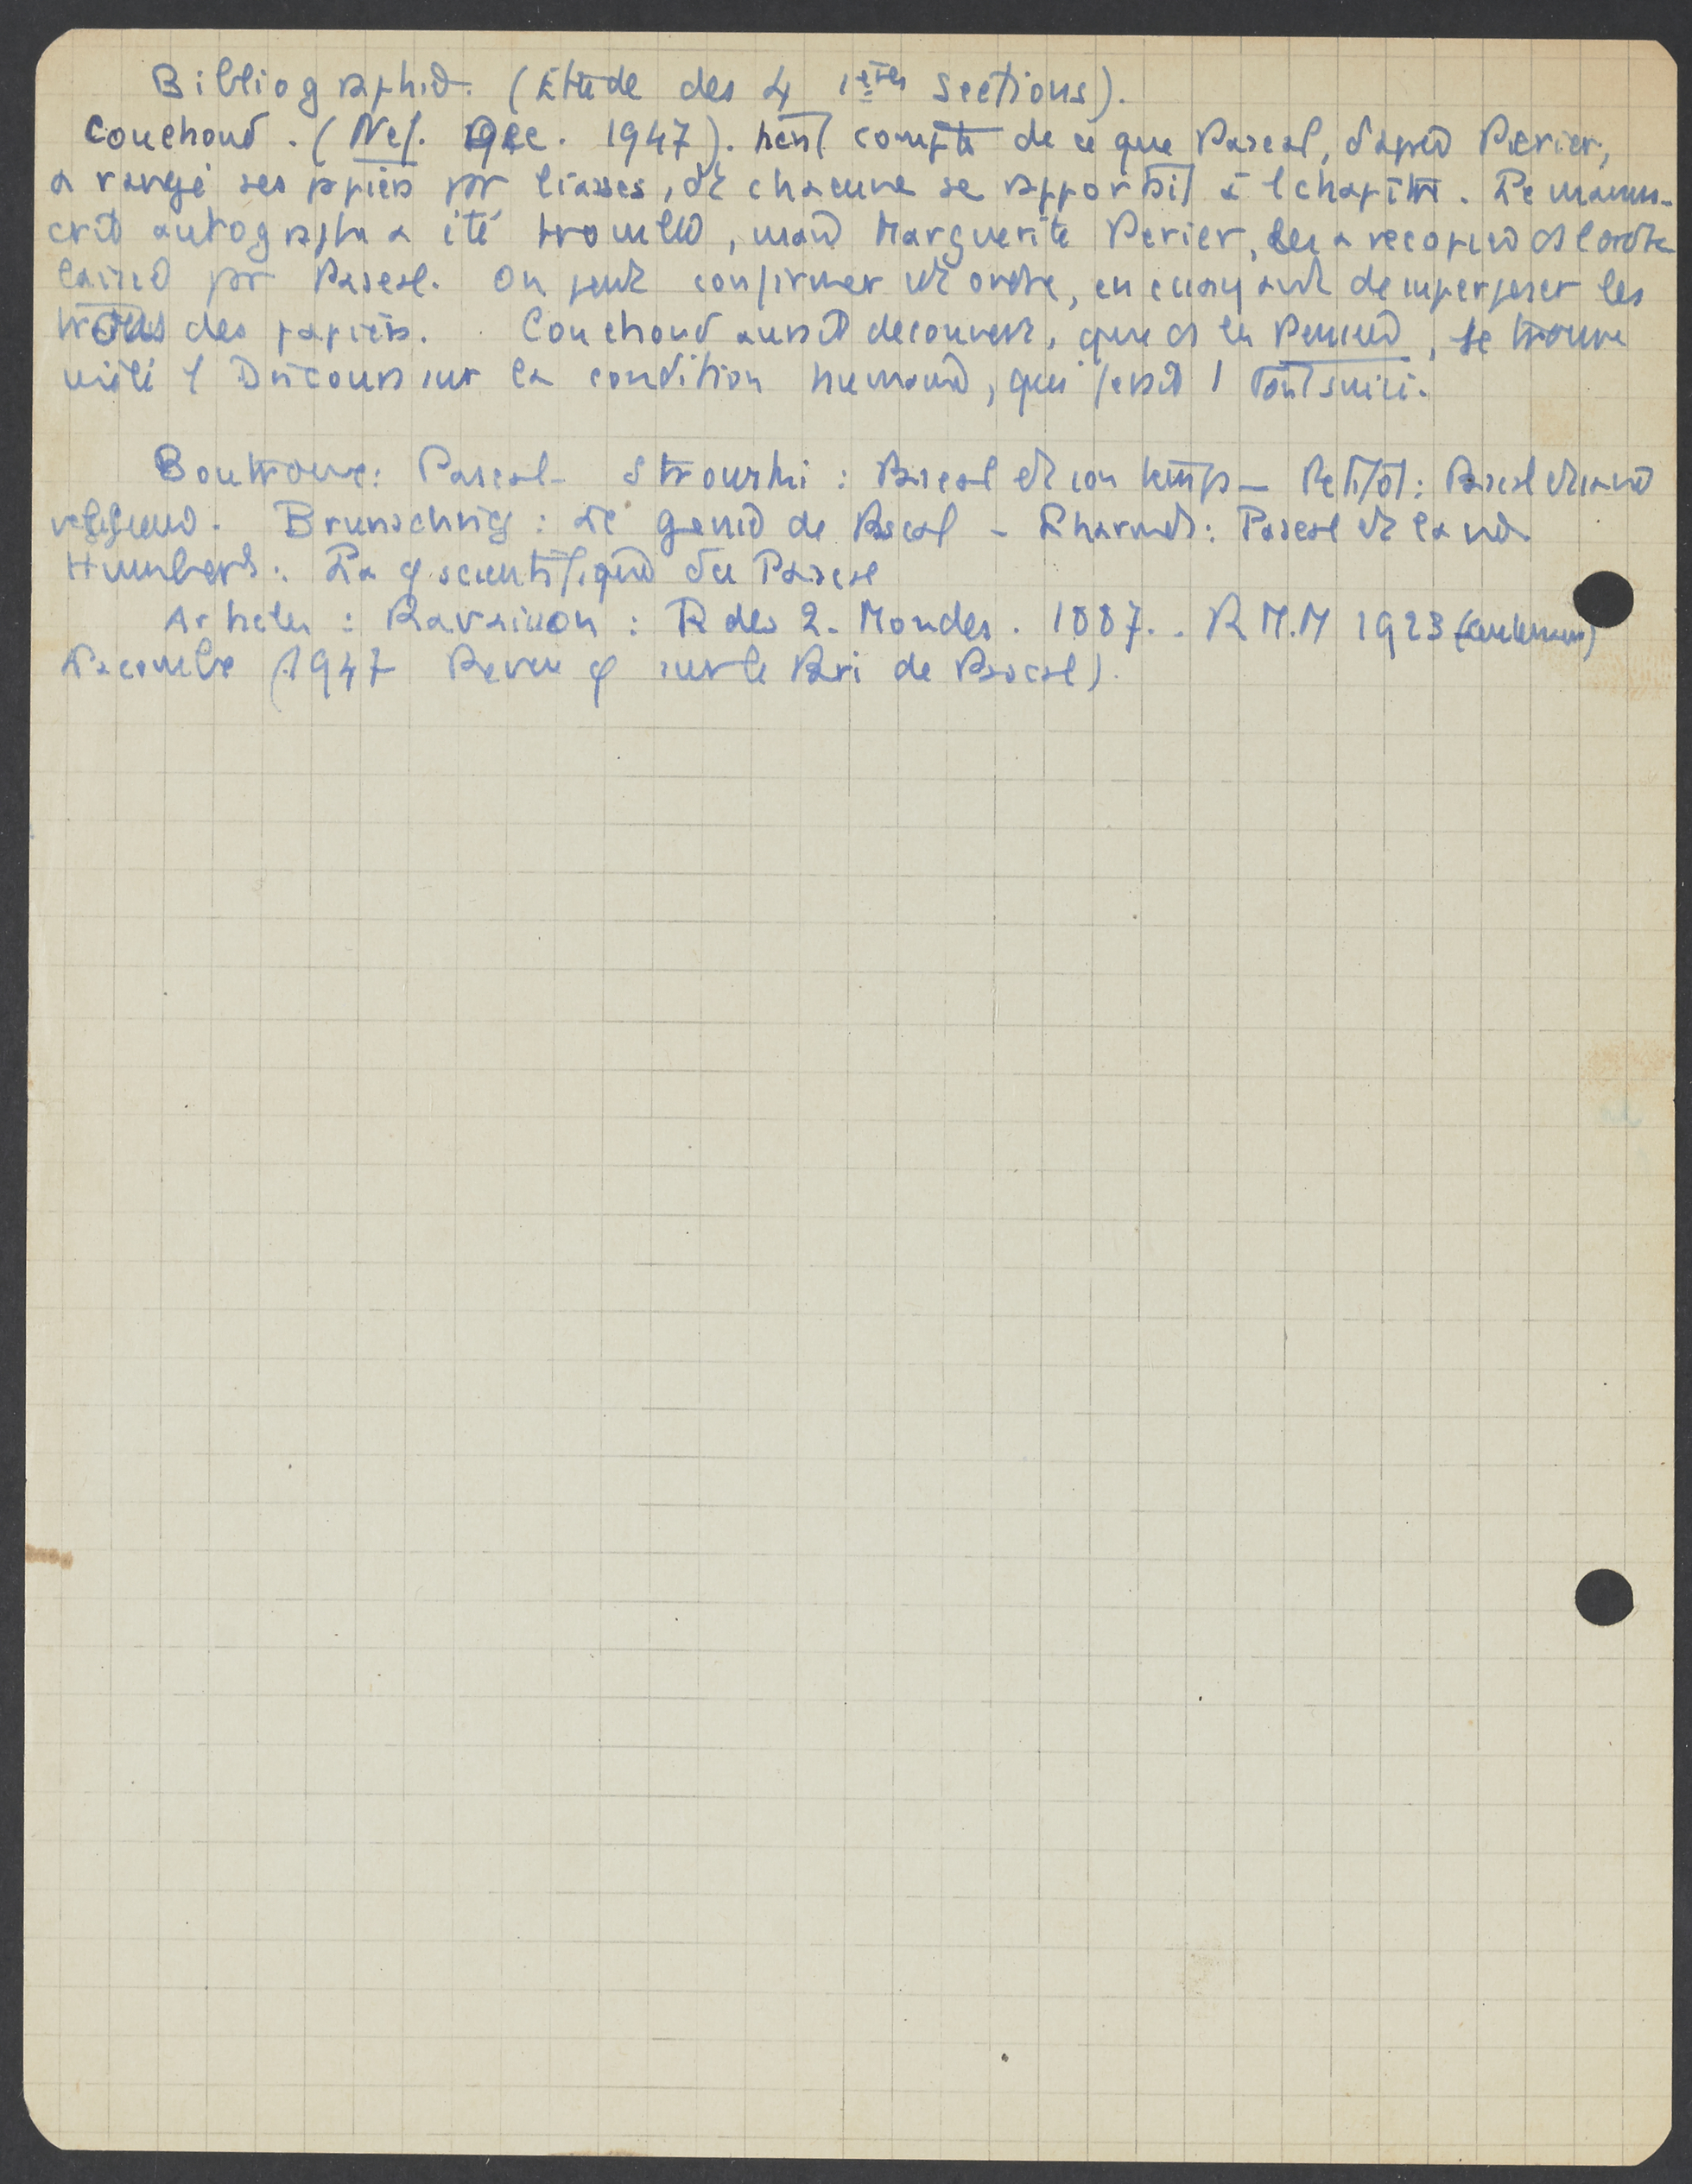 Bibliographie. (Etude des 4 1ères sections).
Couchoud. (Nef. Dec. 1947). tient compte de ce que Pascal, d'après Perier,
a rangé ses papiers par liasses, et chacune se rapportait à 1 chapitre. Le manus-
crit autographe a été brouillé, mais Marguerite Perier, les a recopiés ds l'ordre
laissé par Pascal. On peut confirmer cet ordre, en essayant de superposer les
trous des papiers. Couchoud aurait découvert, que ds les Pensées, se trouve
mêlé 1 Discours sur la condition humaine, qui ferait 1 tout suivi.
Boutroux: Pascal - Strowski: Pascal et son temps - Petitot: Pascal et sa vie
religieuse. Brunschvicg: Le génie de Pascal - Pascal et la vie
Humbert: La φ scientifique de Pascal
Articles: Ravaisson: R des 2. Mondes. 1887. . R M.M 1923
Décembre (1947 Revue φ sur le Pari de Pascal).